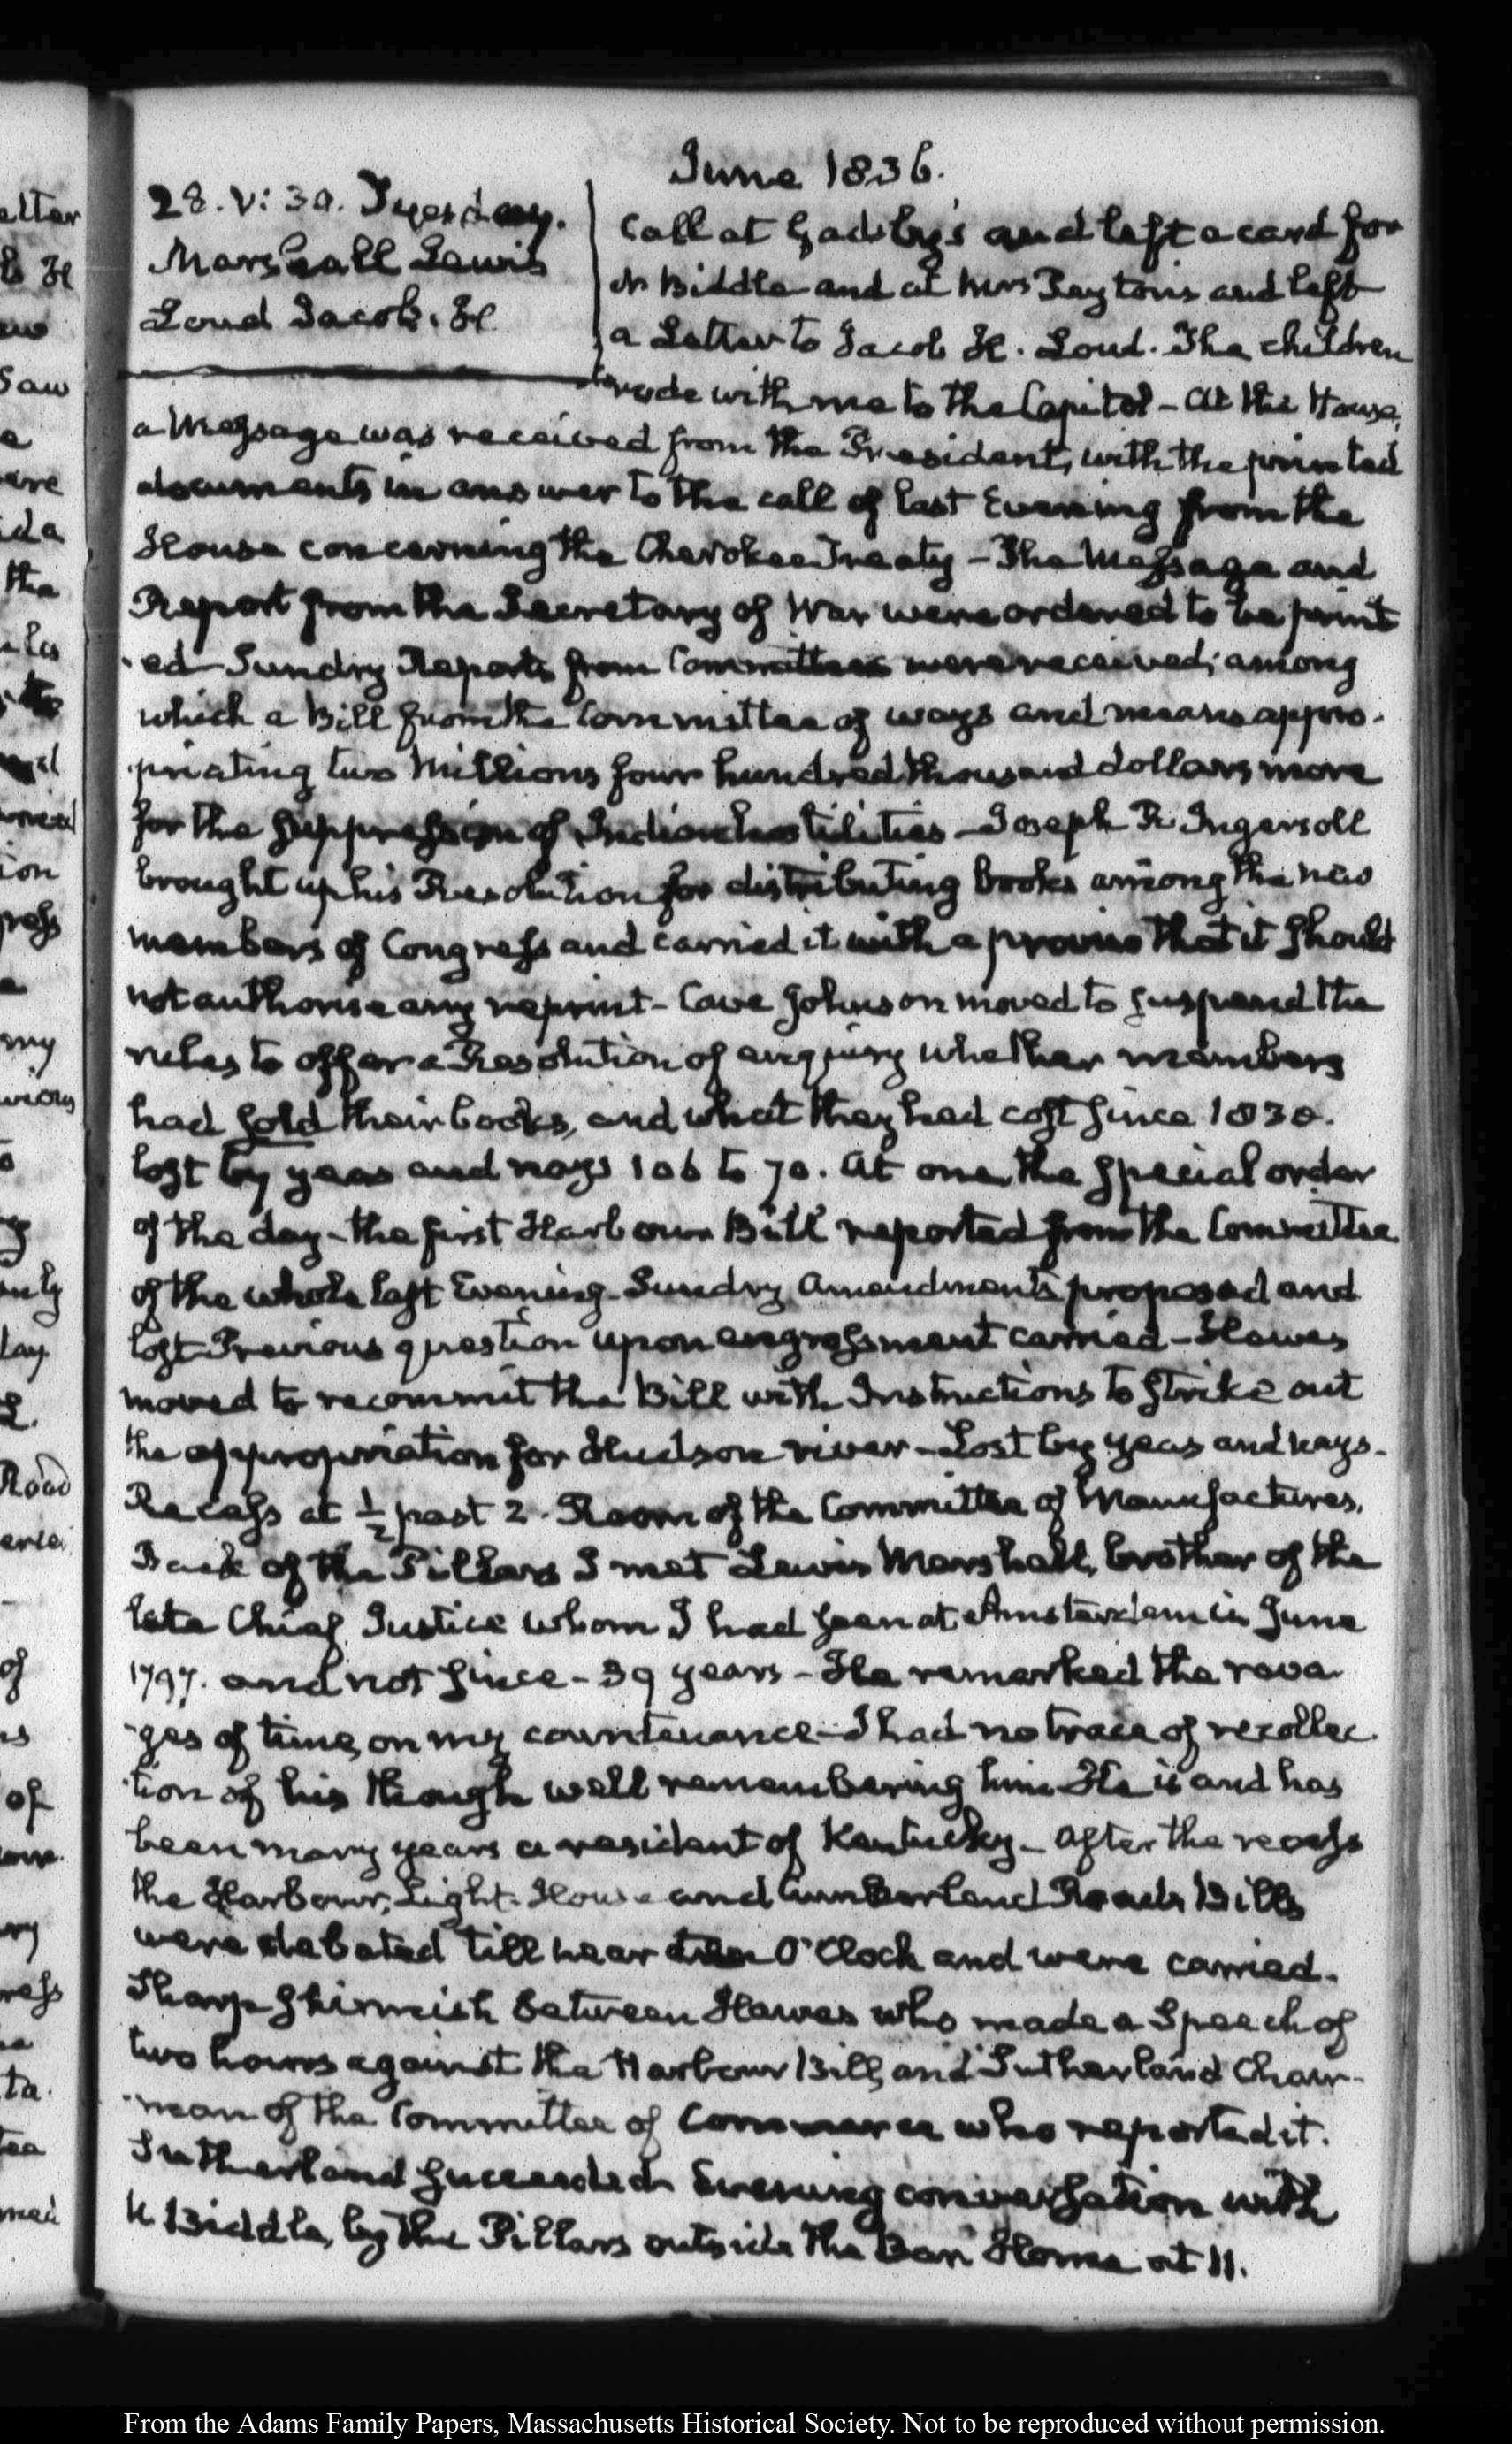 June 1836.
28. V: 30. Tuesday.
Marshall Lewis
Loud Jacob. H
Call at Gadsby's and left a card for
N Biddle and at Mrs Peyton's and left
a Letter to Jacob H. Loud. The children
rode with me to the Capitol – At the House,
a Message was received from the President, with the printed
documents in answer to the call of last Evening from the
House concerning the Cherokee Treaty – The Message and
Report from the Secretary of War were ordered to be print
ed Sundry Reports from Committees were received; among
which a Bill from the Committee of ways and means appro-
priating two Millions four hundred thousand dollars more
for the suppression of Indian hostilities – Joseph R. Ingersoll
brought up his Resolution for distributing books among the new
members of Congress and carried it with a proviso that it should
not authorise any reprint – Cave Johnson moved to suspend the
rules to offer a Resolution of enquiry whether members
had sold their books, and what they had cost since 1830.
lost by yeas and nays 106 to 70. At one, the special order
of the day – the first Harbour Bill reported from the Committee
of the whole last Evening – Sundry Amendments proposed and
lost Previous question upon engrossment carried – Hawes
moved to recommit the Bill with Instructions to strike out
the appropriation for Hudson river – Lost by yeas and nays –
Recess at ½ past 2. Room of the Committee of Manufactures.
Back of the Pillars I met Lewis Marshall, brother of the
late Chief Justice whom I had seen at Amsterdam in June
1797. and not since – 39 years – He remarked the rava
ges of time, on my countenance – I had no trace of recollec
tion of his though well remembering him He is and has
been many years a resident of Kentucky – After the recess
the Harbour, Light-House and Cumberland Road Bills
were debated till near O'Clock and were carried.
Sharp skirmish between Hawes who made a Speech of
two hours against the Harbour Bill, and Sutherland Chair-
man of the Committee of Commerce who reported it.
Sutherland succeeded Evening conversation with
N Biddle, by the Pillars outside the Bar Home at 11.
From the Adams Family Papers, Massachusetts Historical Society. Not to be reproduced without permission.